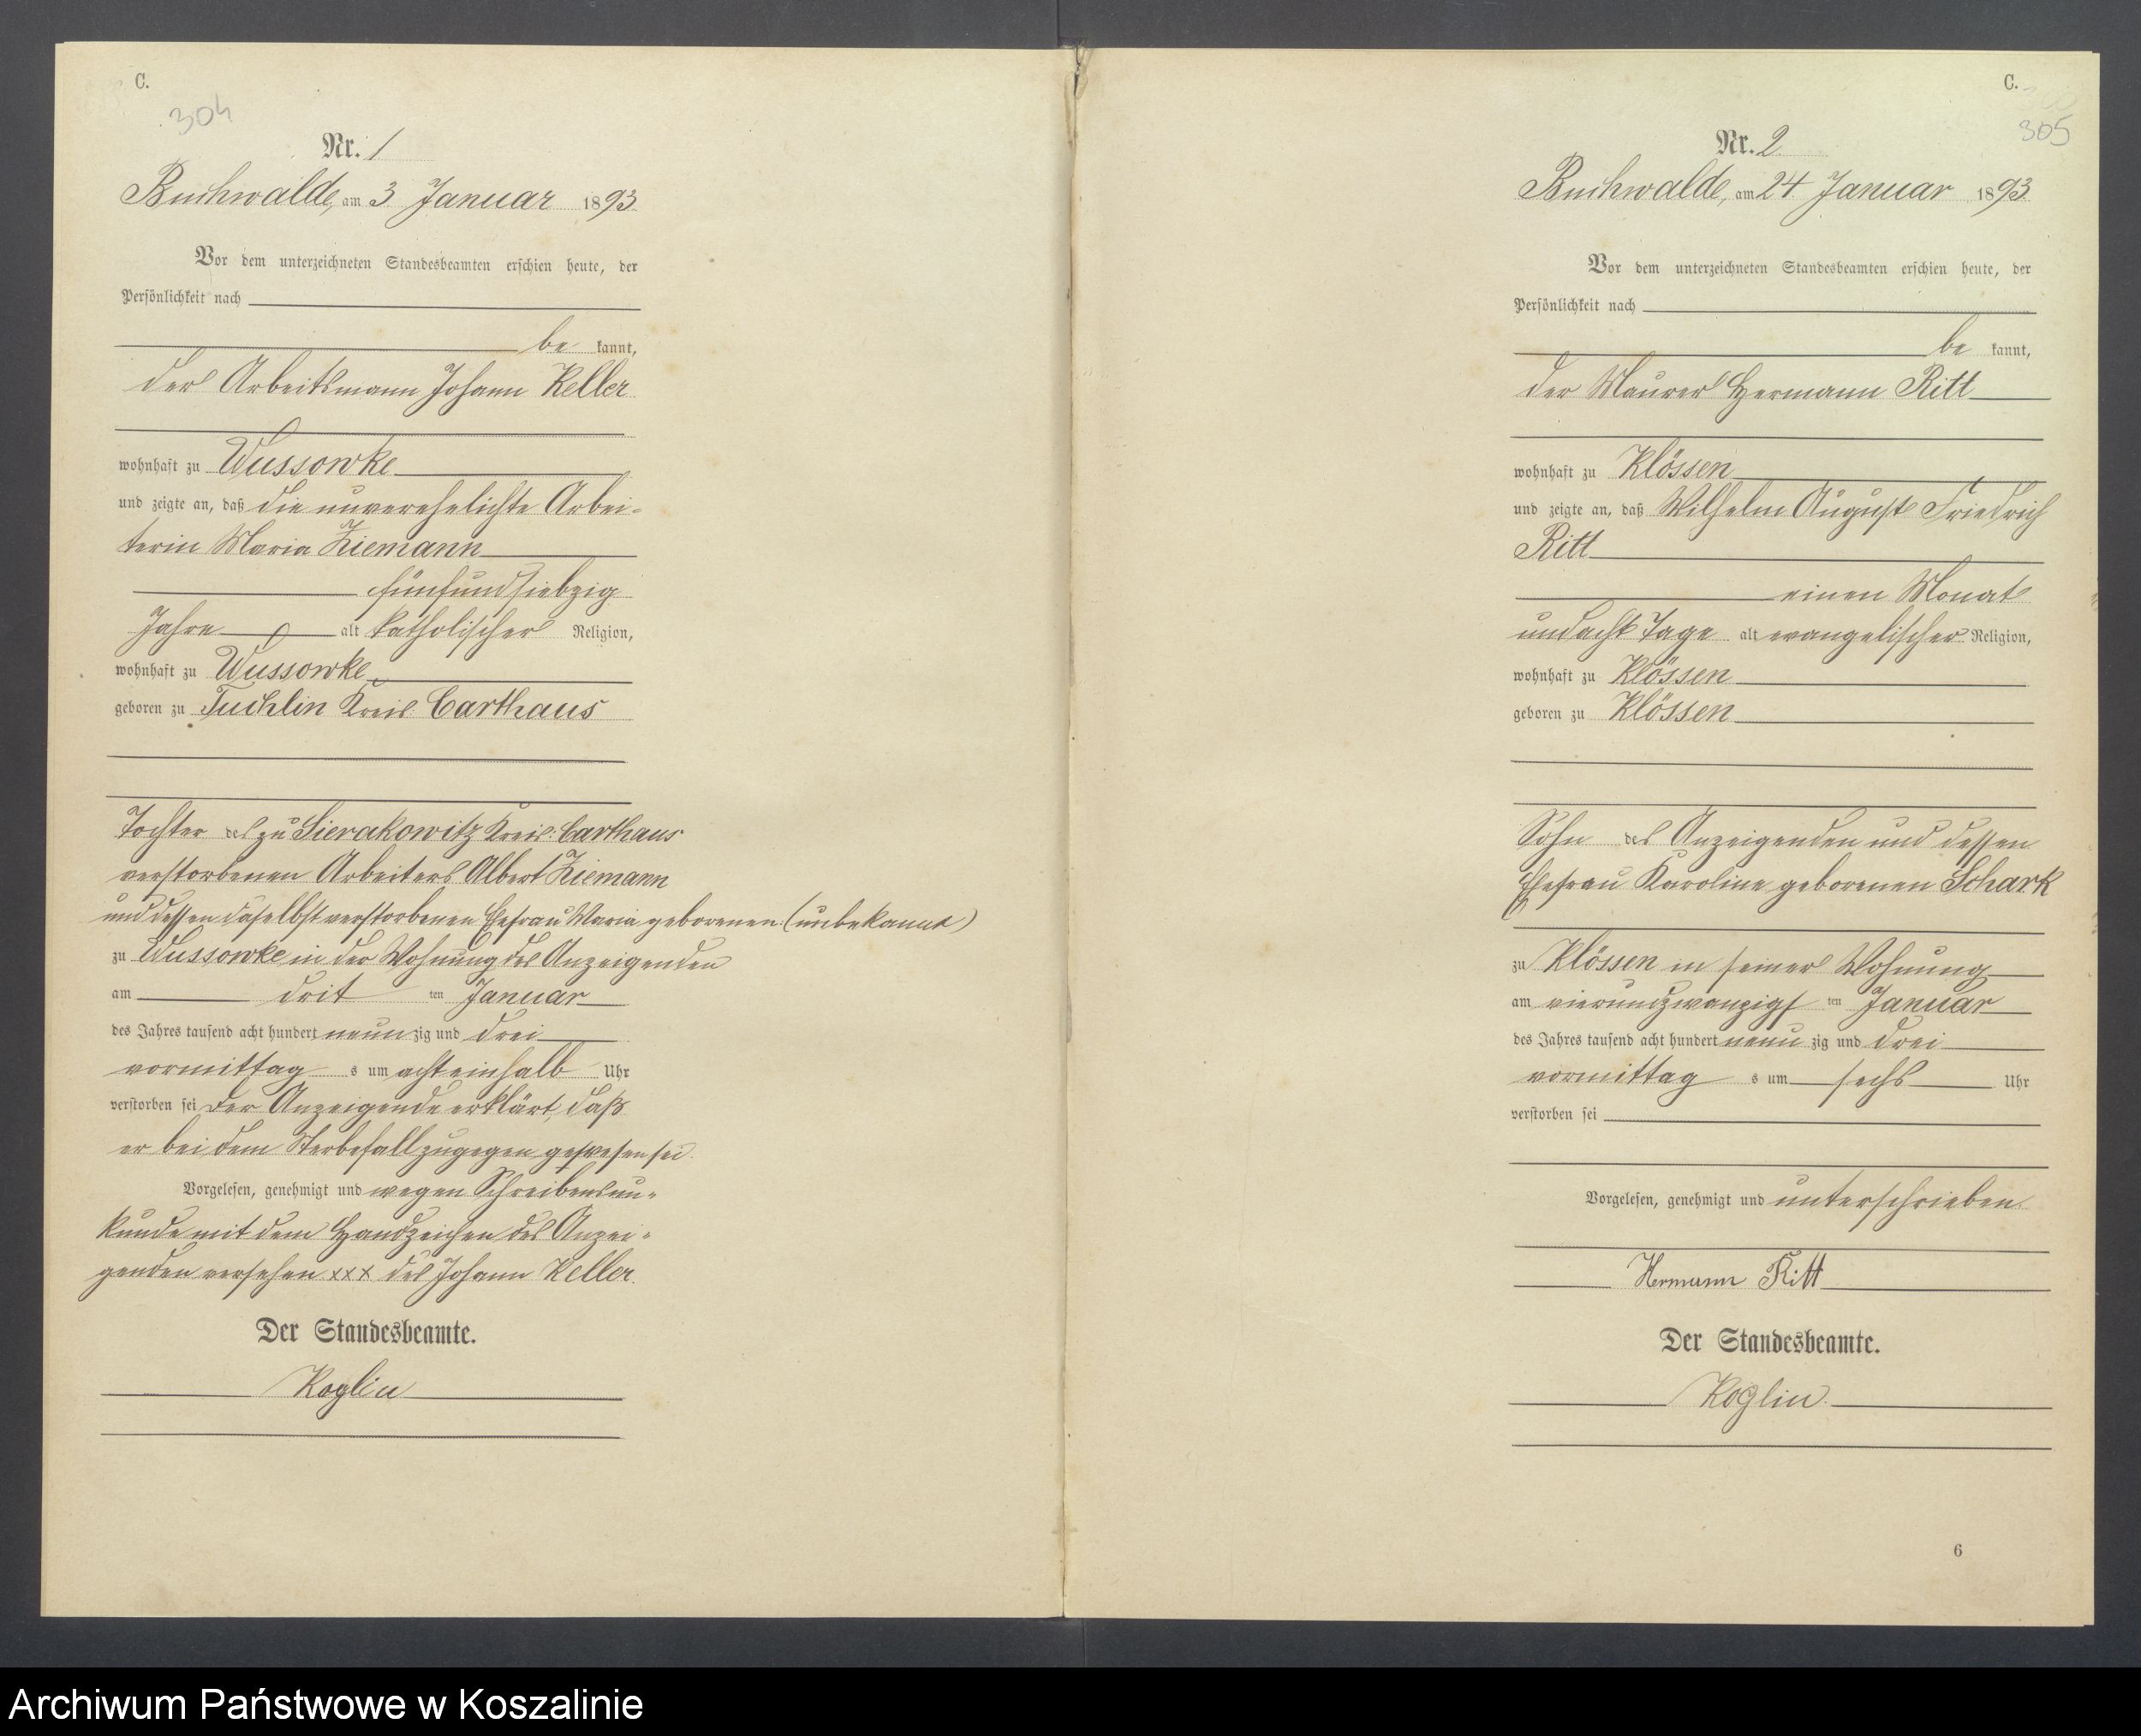 C.
304
Nr. 1
Buchwalde, am 3 Januar 1893.
Vor dem unterzeichneten Standesbeamten erschien heute, der
Persönlichkeit nach
be kannt,
der Arbeitsmann Johann Keller
wohnhaft zu Wussowke
und zeigte an, daß die unverehelichte Arbei-
terin Maria Ziemann
fünfundsiebzig
Jahre alt katholischer Religion,
wohnhaft zu Wussowke
geboren zu Tuchlin Kreis Carthaus
Tochter des zu Sierakowitz Kreis: Carthaus
verstorbenen Arbeiters Albert Ziemann
und dessen daselbst verstorbenen Ehefrau Maria geborenen (unbekannt)
zu Wussowke in der Wohnung des Anzeigenden
am drit ten Januar
des Jahres tausend acht hundert neun zig und drei
vormittag s um achteinhalb Uhr
verstorben sei Der Anzeigende erklärt, daß
er bei dem Sterbefall zugegen gewesen sei.
Vorgelesen, genehmigt und wegen Schreibensun-
kunde mit dem Handzeichen des Anzei-
genden versehen xxx des Johann Keller.
Der Standesbeamte.
Koglin
C.
305
Nr. 2
Buchwalde, am 24. Januar 1893
Vor dem unterzeichneten Standesbeamten erschien heute, der
Persönlichkeit nach
be kannt,
der Maurer Hermann Ritt
wohnhaft zu Klössen
und zeigte an, daß Wilhelm August Friedrich
Ritt
einen Monat
und acht Tage alt evangelischer Religion,
wohnhaft zu Klössen
geboren zu Klössen
Sohn des Anzeigenden und dessen
Ehefrau Karoline geborenen Schark
zu Klössen in seiner Wohnung
am vierundzwanzigs ten Januar
des Jahres tausend acht hundert neun zig und drei
vormittag s um sechs Uhr
verstorben sei
Vorgelesen, genehmigt und unterschrieben
Hermann Ritt
Der Standesbeamte.
Koglin.
6
Archiwum Państwowe w Koszalinie